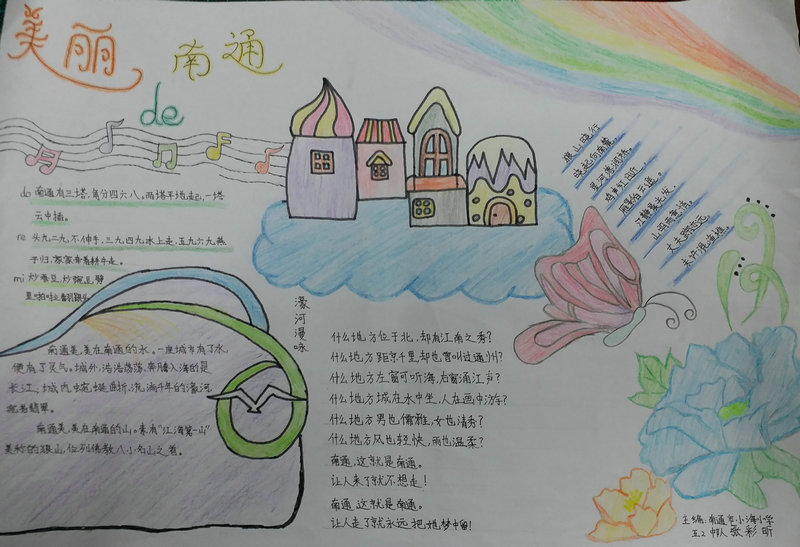 美丽
de
南通
do 南通有三塔,角分四六八。两塔平地起,一塔
云中插。
re 头九二九,不伸手,三九四九水上走,五九六九燕
子归,家家牵着耕牛走。
mi 炒蚕豆,炒豌豆,劈
里啪啦翻跟头
南通美,美在南通的水。一座城市有了水,
便有了灵气。城外,浩浩荡荡,奔腾入海的是
长江,城内,蜿蜒曲折,流淌千年的濠河
宛若翡翠。
南通美,美在南通的山。素有“江海第一山”
美称的狼山,位列佛教八小名山之首。
濠河漫咏
什么地方位于北,却有江南之秀?
什么地方距京千里却也曾叫过通州?
什么地方左窗可听海,右窗涌江声?
什么地方城在水中坐,人在画中游?
什么地方男也儒雅,女也清秀?
什么地方风也轻快,雨也温柔?
南通,这就是南通。
让人来了就不想走!
南通,这就是南通。
让人走了就永远把她梦中留!
狼山晓行
晓起向南麓,
星河
红日近,
雁
江静晨光发,
山雨
丈夫
未许
主编:南通市小海小学
五.2中队 张彩昕